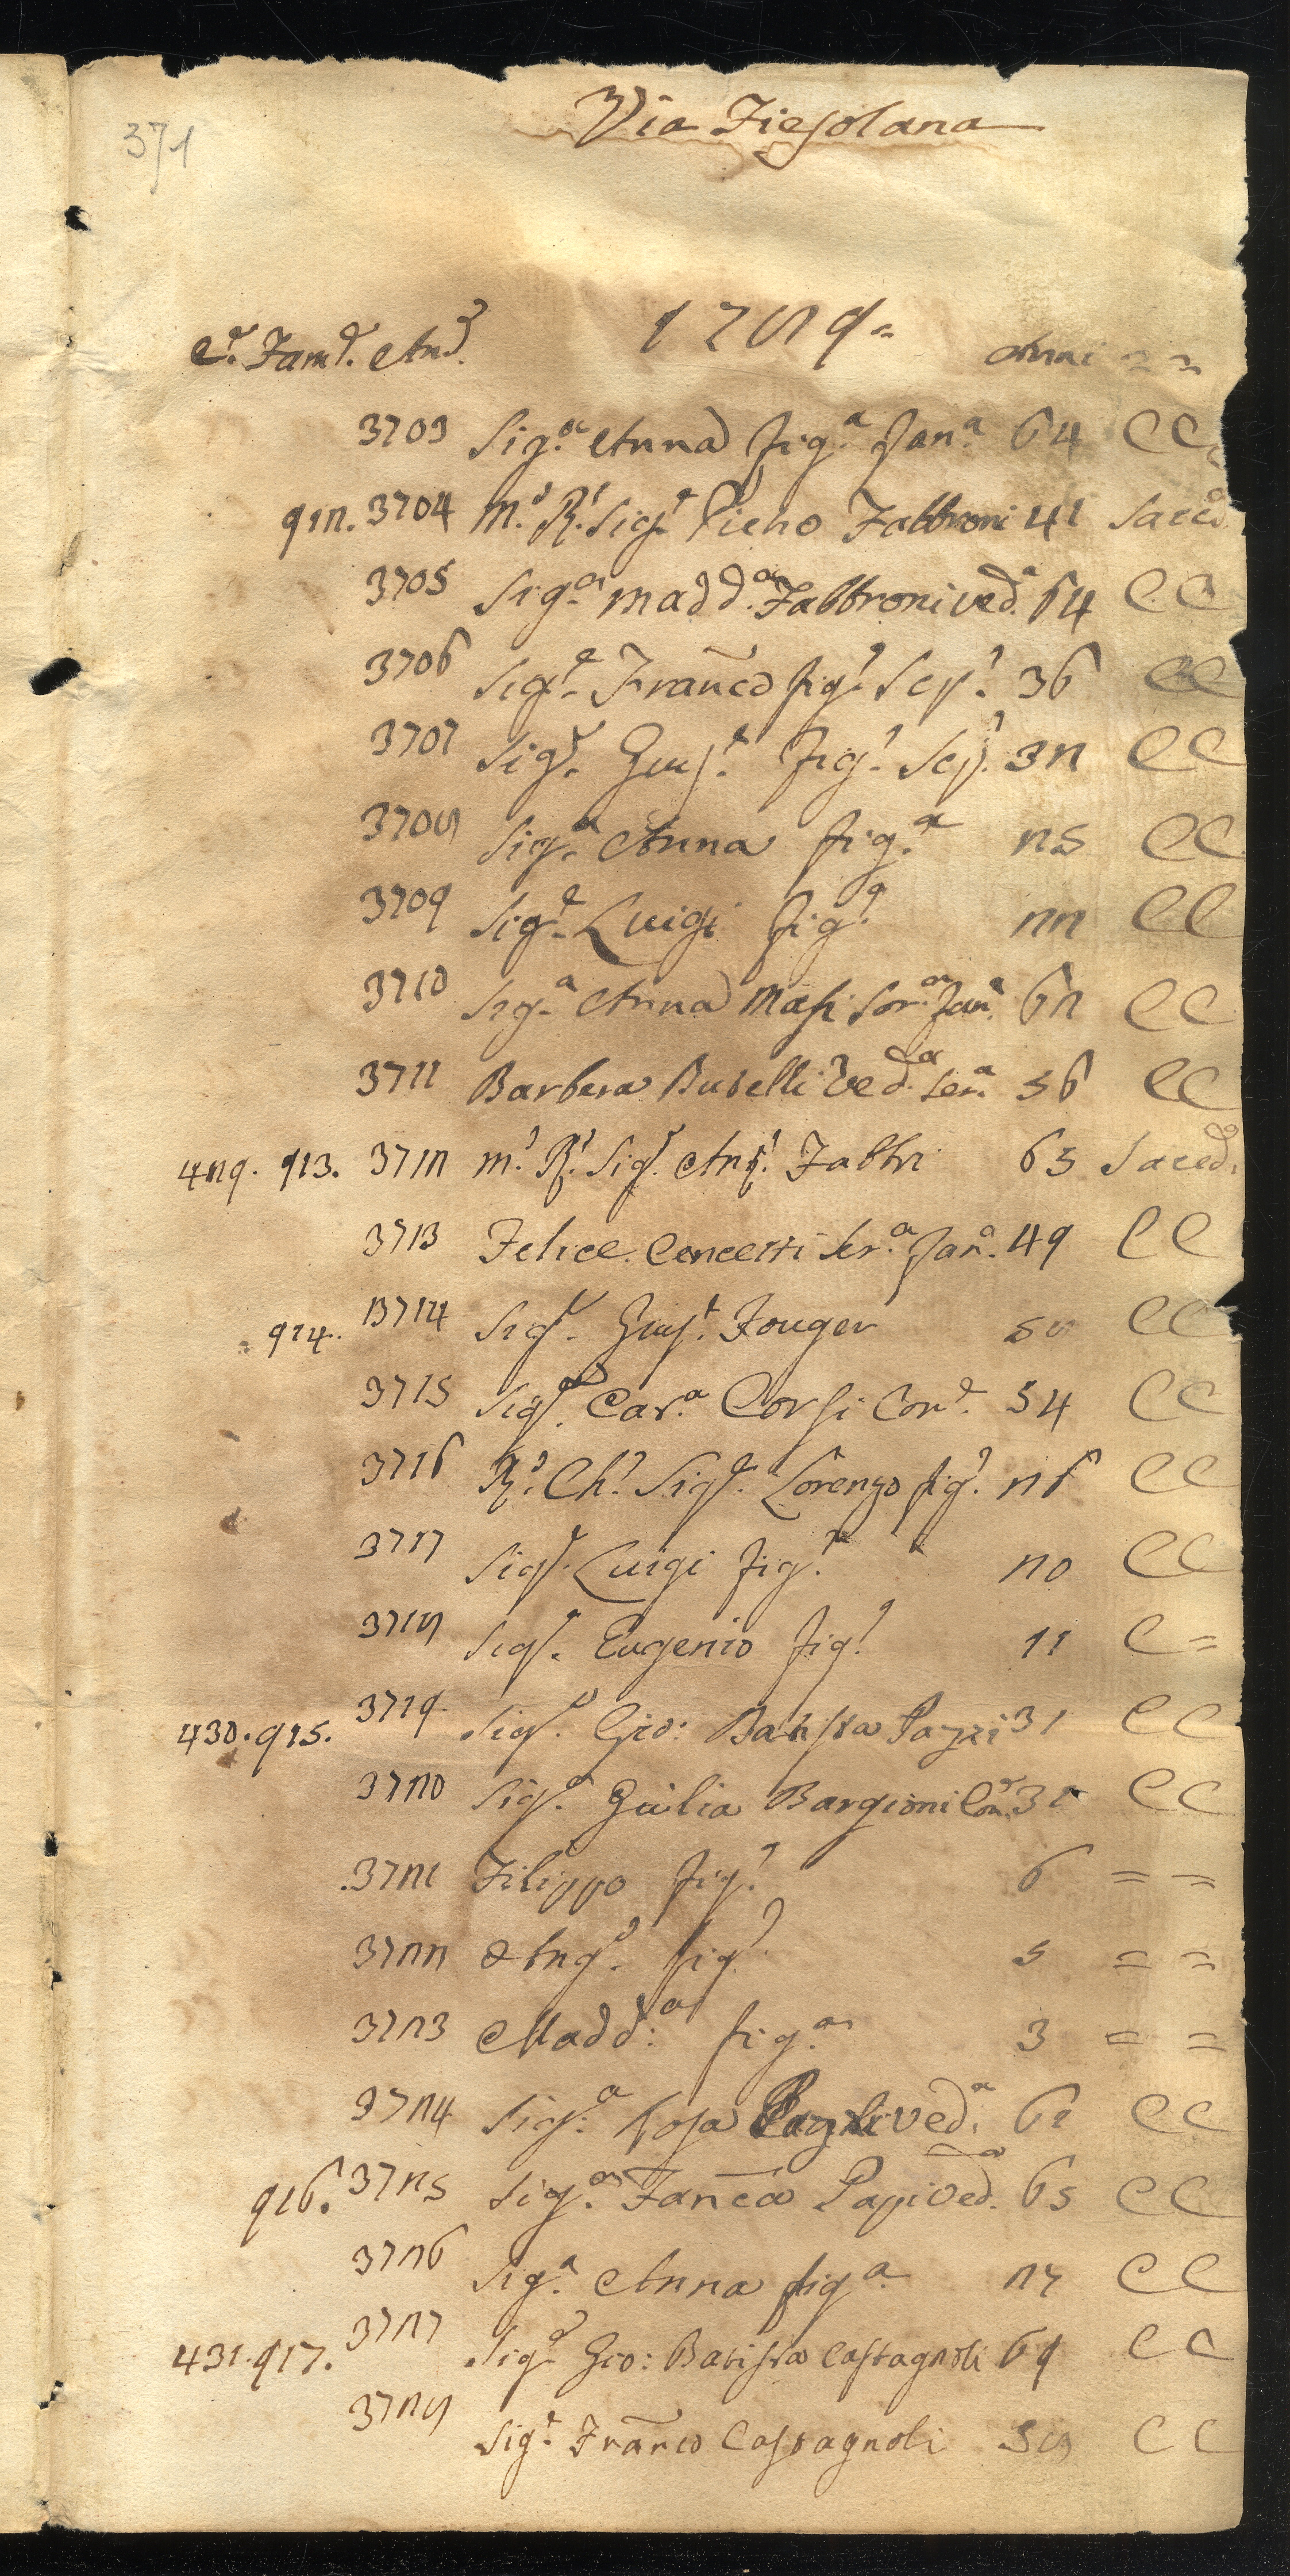 371
Via Fiesolana
1789
C.e Fam.e An.e Anni
3703 Sig.a Anna fig.a Fan.a 64 C C
912. 3704 M.o R.o Sig.r Pietro Fabbroni 41 Sacerd.
3705 Sig.a Madd.a Fabbroni Ved.a 64 C C
3706 Sig.r Franco fig.o Sco.o 36 C C
3707 Sig.r Gius.e fig.o Sco.o 32 C C
3708 Sig.a Anna fig.a 25 C C
3709 Sig.r Luigi fig.o 22 C C
3710 Sig.a Anna Masi Sor.a Fan.a 62 C C
3711 Barbera Buselli Ved.a Ser.a 56 C C
429. 913. 3712 M.o R.o Sig.r Ant.o Fabbri 65 Sacerd.
3713 Felice Concetti Ser.a Fan.a 49 C C
914. 3714 Sig.r Gius.e Fouger 58 C C
3715 Sig.a Cat.a Corsi Con.e 54 C C
3716 R.o Ch.o Sig.r Lorenzo fig.o 26 C C
3717 Sig.r Luigi fig.o 20 C C
3718 Sig.r Eugenio fig.o 11 C =
430. 915. 3719 Sig.r Gio: Batista Pazzi 31 C C
3720 Sig.a Giulia Bargioni Con.e 31 C C
3721 Filippo fig.o 6 = =
3722 Ang.o fig.o 5 = =
3723 Madd:a fig.a 3 = =
3724 Sig.a Rosa Ved.a 61 C C
916. 3725 Sig.a Fanca Papi Ved.a 65 C C
3726 Sig.a Anna fig.a 27 C C
431. 917. 3727 Sig.r Gio: Batista Castagnoli 69 C C
3728 Sig.r Franco Castagnoli 38 C C